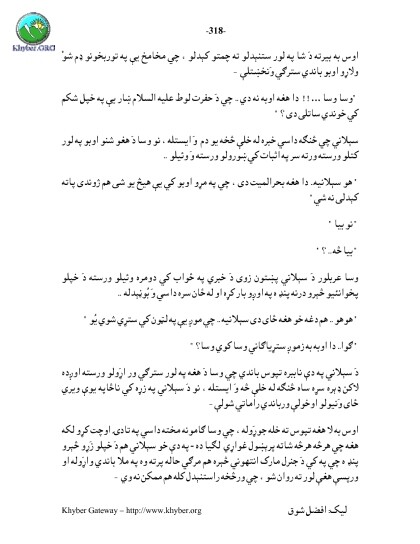 Khyber.ORG
-318-
اوس به بېرته دَ شا په لور ستنېدلو ته چمتو کېدلو ، چي مخامخ يې په توربخونو ډم شوُ
ولاړو اوبو باندي سترګي وَنخښتلې -
"وسا وسا ...!! دا هغه اوبه نه دي.. چي دَ حفرت لوط عليه السلام ښار يې په خپل شکم
کي خوندي ساتلی دی ؟ "
سېلاني چي څنګه داسې خبره له خلې څخه يو دم وَ ايستله ، نو وسا دَ هغو شنو اوبو په لور
کتلو ورسته ورته سر په اثبات کي ښورولو ورسته وَ وئيلو ..
" هو سېلانيه. دا هغه بحرالميت دی ، چي په مړو اوبو کي يې هيڅ يو شی هم ژوندی پاته
کېدلی نه شي "
"نو بيا "
"بيا څه..؟ "
وسا عربلور دَ سېلاني پښتون زوی دَ خبرې په ځواب کي دومره وئيلو ورسته دَ خپلو
پخوانئيو څېرو درنه پنډه په اوږو بار کړه او له ځان سره داسي وَ بُوڼېدله ..
"هو هو .. هم دغه خو هغه ځای دی سېلانيه.. چي موږ يې په لټون کي ستړي شوي يُو "
"ګوا.. دا اوبه به زموږ ستړياګاني وسا کوي وسا؟ "
دَ سېلاني په دې نابيره تپوس باندي چي وسا دَ هغه په لور سترګي ور اړولو ورسته اوږده
لاکن ډېره سړه ساه څنګه له خلې څه وَ ايستله ، نو دَ سېلاني په زړه کي ناڅاپه يوې ويرې
ځای وَنيولو اوخولې ورباندي راماتي شولې -
اوس به لا هغه تپوس ته خله جوړوله ، چي وسا ګامونه مخته داسي په تادۍ اوچت کړو لکه
هغه چي هرڅه هرڅه شاته پرېښول غواړي لګيا ده - په دې خو سېلاني هم دَ خپلو زړو څېرو
پنډه چي په کي دَ جنرل مارک انتهوني څېره هم مرګي حاله پرته وه په ملا باندي واړوله او
ورپسې هغې لور ته روان شو ، چي ورڅخه راستنېدل کله هم ممکن نه وي -
Khyber Gateway – http://www.khyber.org
ليک: افضل شوق